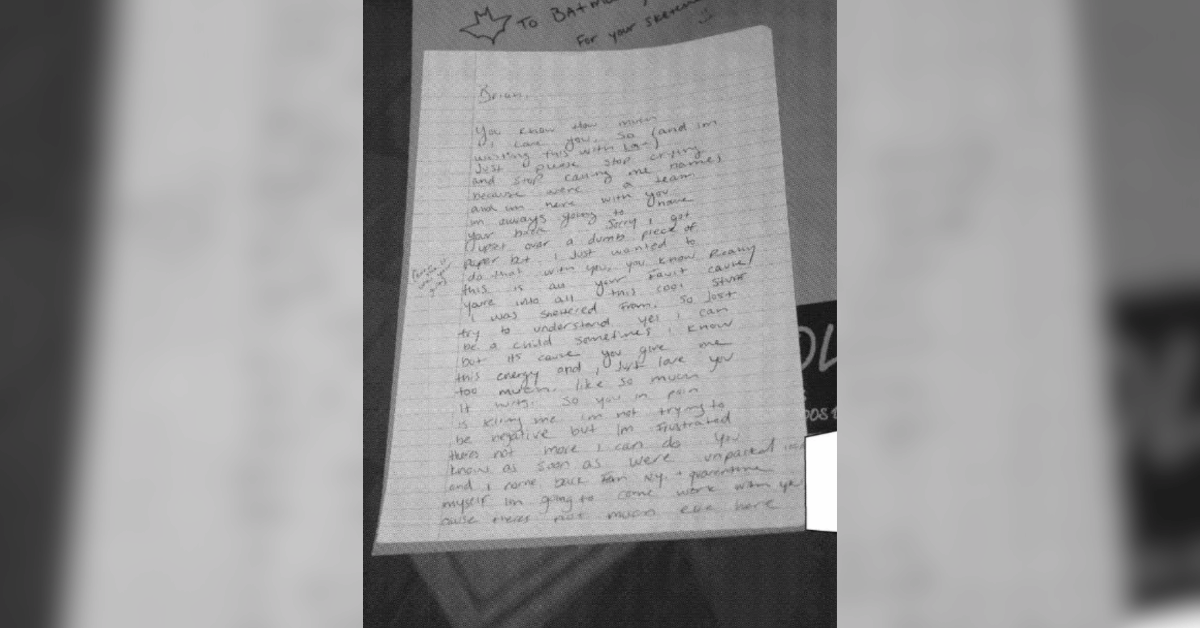 To BAtm
For your sketch
Brian,
You know How much
I Love you, so (and im
writing this with Love)
Just please stop crying
and stop calling me names
because were a team
and im here with you
im always going to have
your back. Sorry i got
upset over a dumb piece of
paper but i Just wanted to
do that with you, you know Really
this is all your Fault cause
youre into all this cool stuff
i was sheltered From. So Just
try to understand yes i can
be a child sometimes i know
but its cause you give me
this energy and i Just love you
too much. like so much
it hurts. So you in pain
is killing me im not trying to
be negative but Im frustrated
theres not more i can do. You
know as soon as were unpacked
and i come back From N.Y. + quarentine
myself im going to come work with
cause theres not much else here
OL